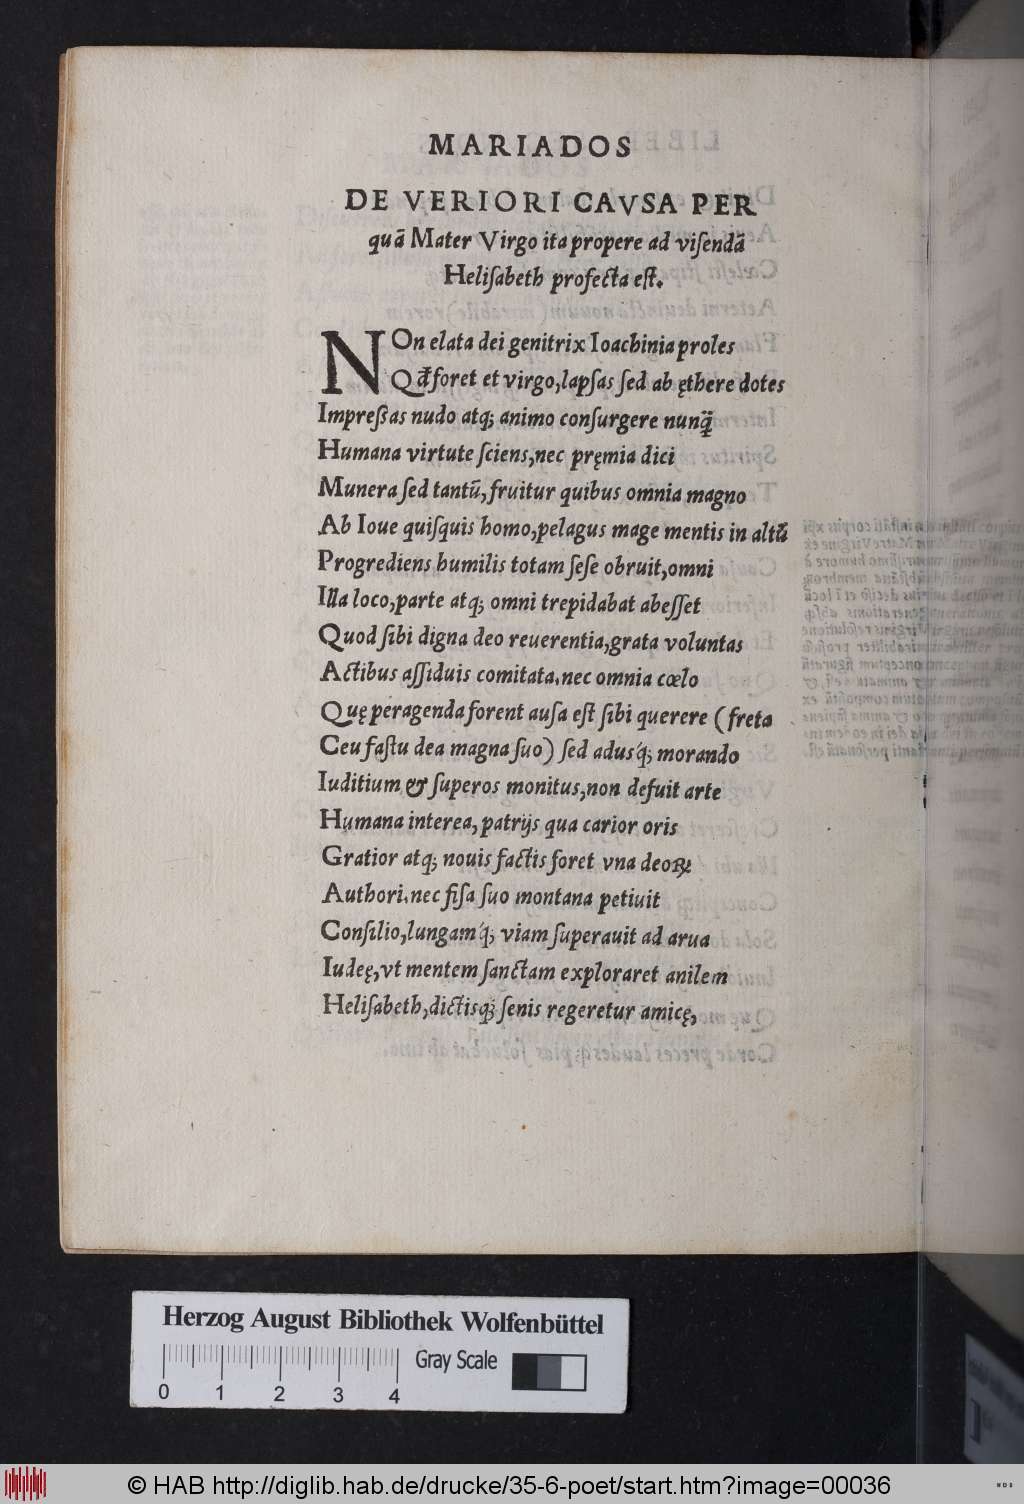 MARIADOS
DE VERIORI CAVSA PER
quā Mater Virgo ita propere ad viſendā
Heliſabeth profecta eſt.
NOn elata dei genitrix Ioachinia proles
Qđ foret et virgo, lapſas ſed ab ęthere dotes
Impreſſas nudo atq; animo conſurgere nunq̃
Humana virtute ſciens, nec pręmia dici
Munera ſed tantū, fruitur quibus omnia magno
Ab Ioue quiſquis homo, pelagus mage mentis in altū
Progrediens humilis totam ſeſe obruit, omni
Illa loco, parte atq; omni trepidabat abeſſet
Quod ſibi digna deo reuerentia, grata voluntas
Actibus aſſiduis comitata. nec omnia cœlo
Quę peragenda forent auſa eſt ſibi querere (freta
Ceu faſtu dea magna ſuo) ſed aduſq́; morando
Iuditium & ſuperos monitus, non defuit arte
Humana interea, patrijs qua carior oris
Gratior atq; nouis factis foret vna deoꝝ
Authori. nec fiſa ſuo montana petiuit
Conſilio, lungamq́; viam ſuperauit ad arua
Iudeę, vt mentem ſanctam exploraret anilem
Heliſabeth, dictisq́; ſenis regeretur amicę,
Herzog August Bibliothek Wolfenbüttel
Gray Scale
0 1 2 3 4
© HAB http://diglib.hab.de/drucke/35-6-poet/start.htm?image=00036